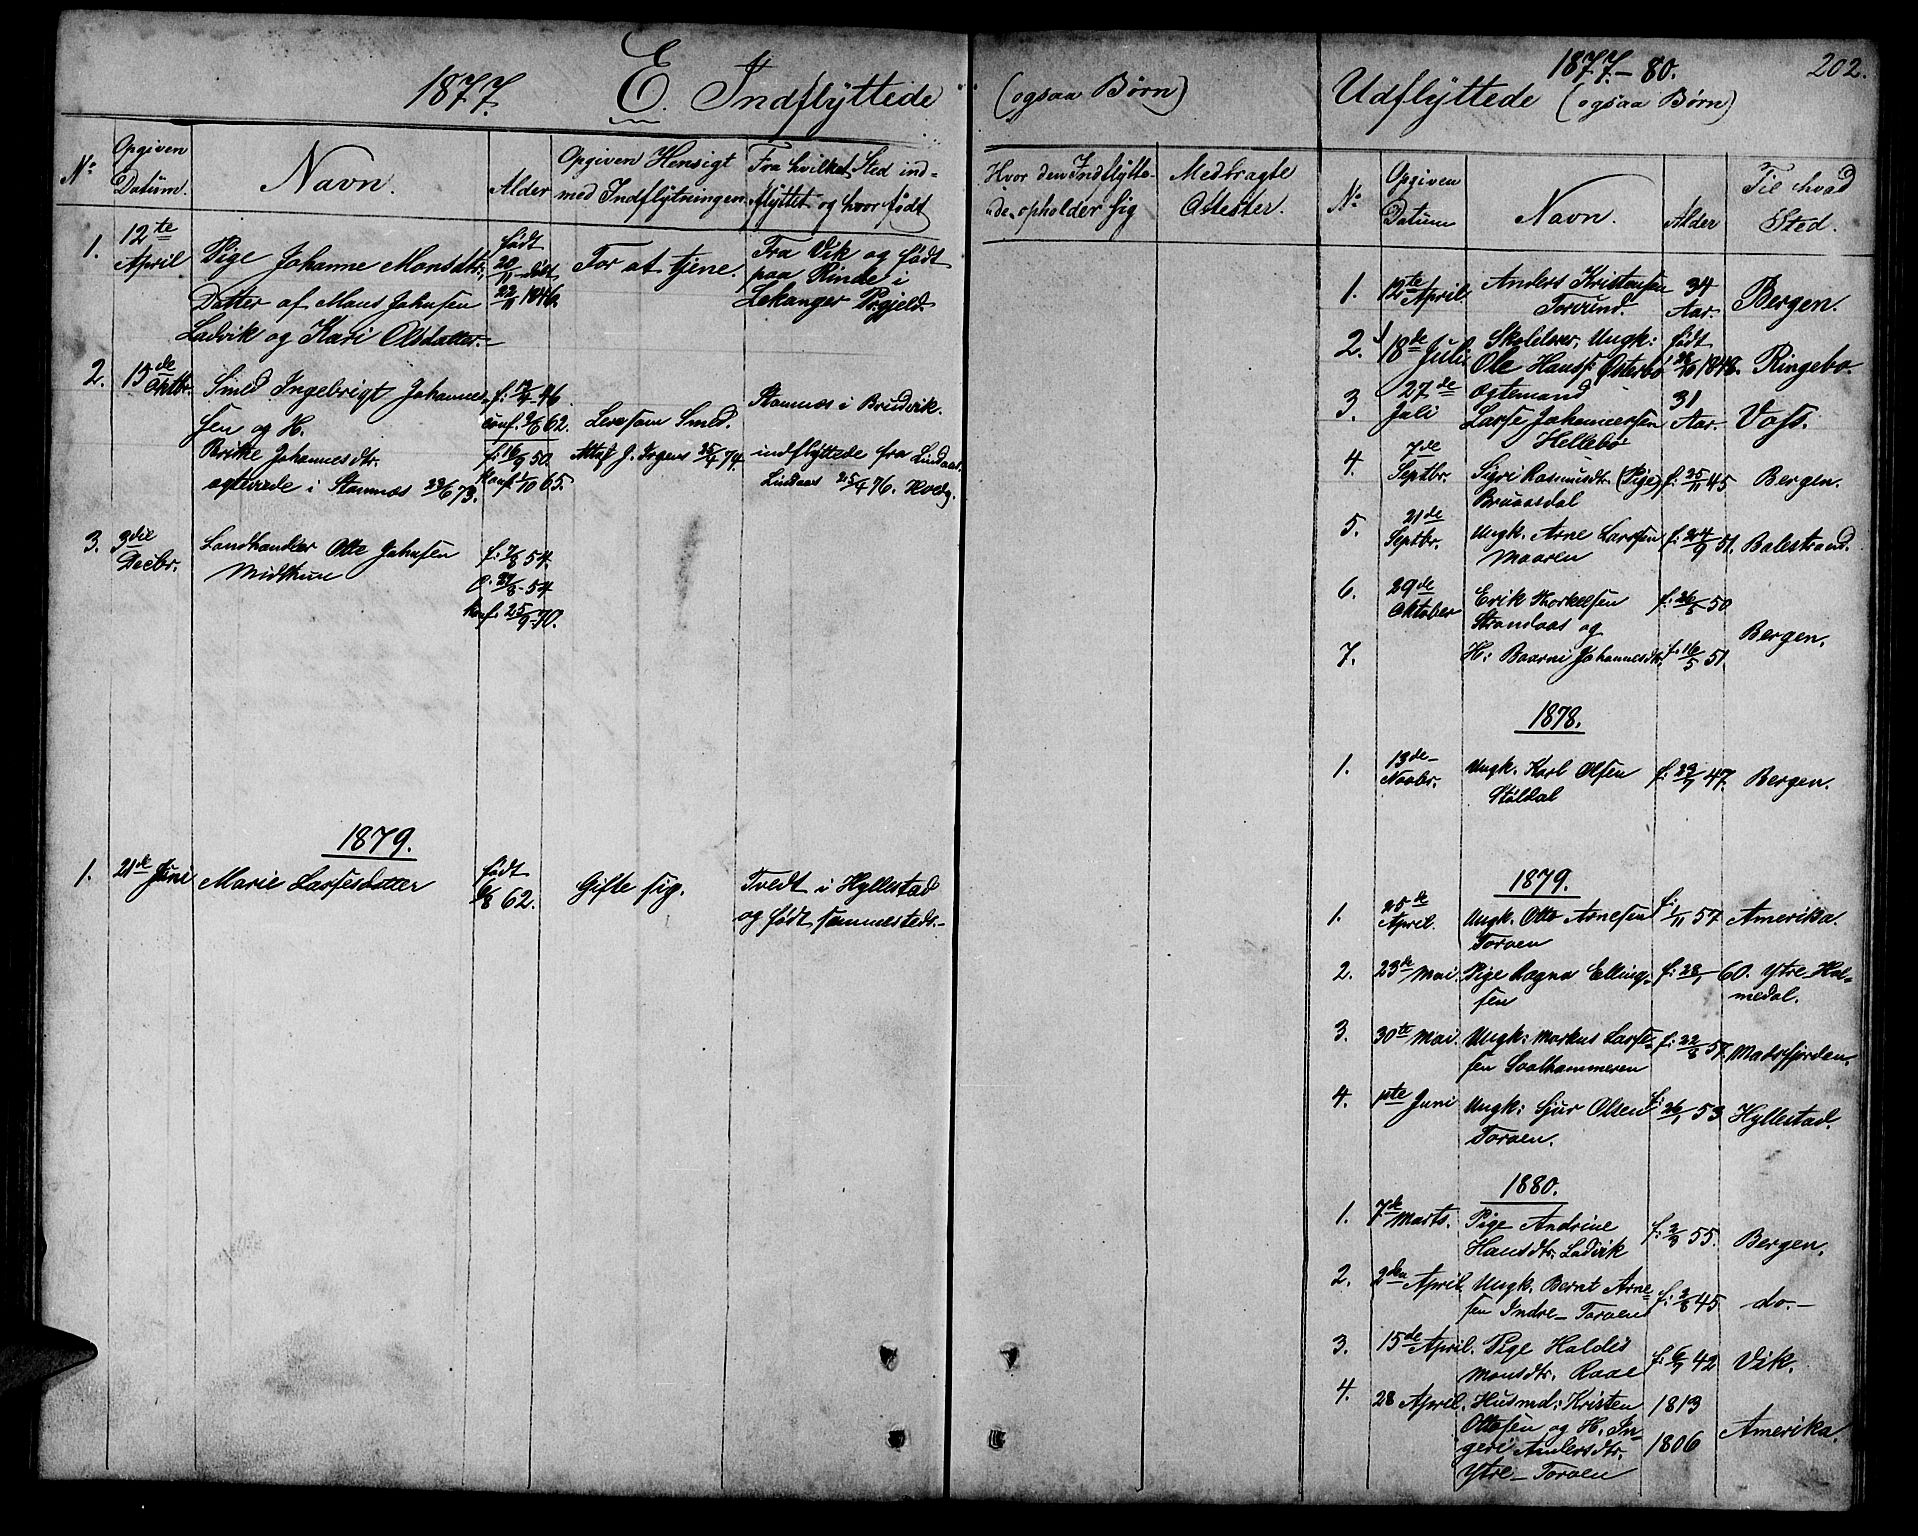 1877. E. Indflyttede
(ogsaa Børn)
No
Opgiven
Datum.
Navn.
Alder
Opgiven Hensigt
med Indflytningen.
Fra hvilket Sted ind-
flyttet og hvor født
Hvor den Indflytte-
de opholder sig
Medbragte
Attester.
1.
12te
April
Pige Johanne Monsdtr.,
Datter af Mons Johnsen
Ladvik og Kari Olsdatter.-
født
20/11 døbt
22/11 1846.
For at tjene.
Fra Vik og født
paa Rinde i
Lekanger Prgjeld.
2.
15de
Oktbr.
Smed Ingebrigt Johannes-
sen og H.
Johannesdtr.
i Stamnæs 29/6 73.
f: 12/4 46.
conf. 62.
f: 16/9 50.
Konf. 1/10 65.
Leve som Smed.
Stamnæs i Bruvik.
indflyttede fra Lindaas.
Lindaas 25/4 76.
3.
3die
Decbr.
Landhandler Otte Johnsen
Midthun
f: 7/8 54.
27/8 - 54
konf: 25/9 70.
1879.
1.
21de Juni
Marie Lassesdatter
født
6/8 62.
Gifte sig.
Tvedt i Hyllestad
og født sammesteds.-
1877.-80.
202.
Udflyttede (ogsaa Børn)
No
Opgiven
Datum
Navn.
Alder
Til hvad
Sted.
1.
12te
April
Anders Kristensen
Torvund.
34
Aar.
Bergen.
2.
18de Juli
Skolelærer, Ungk:
Ole Hanss: Østerbø
født
1848.
Ringebo.
3.
27de
Juli
Lasse Johannessen
Hellebø
31
Aar.
Voss.
4.
7de
Septbr.
Sigri Rasmusdtr. (Pige)
Bruaasdal
f: 25/11 45
Bergen.
5.
21de
Septbr.
Ungk. Arne Larssen
Maaren
f: 24/9 51.
Balestrand.
6.
29de
Oktober
Erik Thorkelsen
Strandaas og
f: 26/8 50
Bergen.
7.
H: Baarni Johannesdtr.
f: 16/5 51.
1878.
1.
13de-
Novbr.
Ungk. Karl Olsen
Støldal
f: 29/7 47.
Bergen.
1879.
1.
25de
April.
Ungk. Otto Arnesen
Torven
f: 1/11 57
Amerika.
2.
23de Mai.
Pige Ragna Elling-
sen
f: 28/1 60.
Ytre-Hol-
medal.
3.
30te Mai.
Ungk: Markus Lasse-
sen
f: 22/8 57.
Madsfjorden.
4.
1ste Juni
Ungk: Sjur Olsen
Torven.
f: 26/1 53
Hyllestad.
1880.
1.
7de Marts.
Pige Andrine
Hansdtr. Ladvik
f: 2/9 55.
Bergen.
2.
2den April.
Ungk. Bernt Arne-
sen Indre-Torven
f: 2/8 45
do.-
3.
15de April.
Pige Haldis
Monsdtr. Raae
f: 6/1 42
Vik.
4.
28 April.
Husmd: Kristen
Ottesen og H. In-
geri Andersdtr.
Ytre-Torven
1813
1806
Amerika.